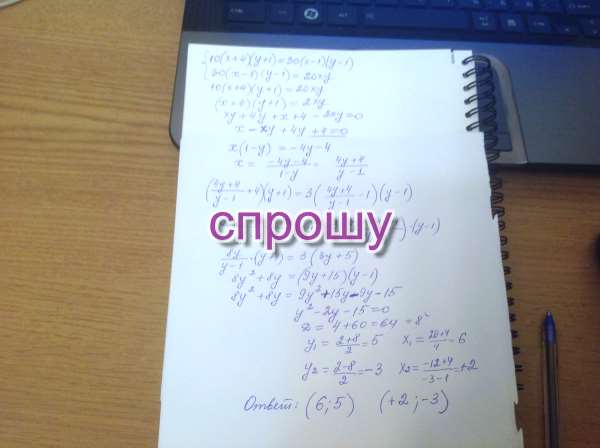 10(x+4)(y+1)=30(x-1)(y-1)
30(x-1)(y-1)=20xy
10(x+4)(y+1)=20xy
(x+4)(y+1)=2xy
xy+4y+x+4-2xy=0
x-xy+4y+4=0
x(1-y)=-4y-4
x=\frac{-4y-4}{1-y}=\frac{4y+4}{y-1}
(\frac{4y+4}{y-1}+4)(y+1)=3(\frac{4y+4}{y-1}-1)(y-1)
спрошу
)·(y-1)
\frac{8y}{y-1}·(y+1)=3(3y+5)
8y²+8y=(9y+15)(y-1)
8y²+8y=9y²+15y-9y-15
y²-2y-15=0
D=4+60=64=8²
y₁=\frac{2+8}{2}=5 x₁=\frac{20+4}{4}=6
y₂=\frac{2-8}{2}=-3 x₂=\frac{-12+4}{-3-1}=+2
Ответ: (6;5) (+2;-3)